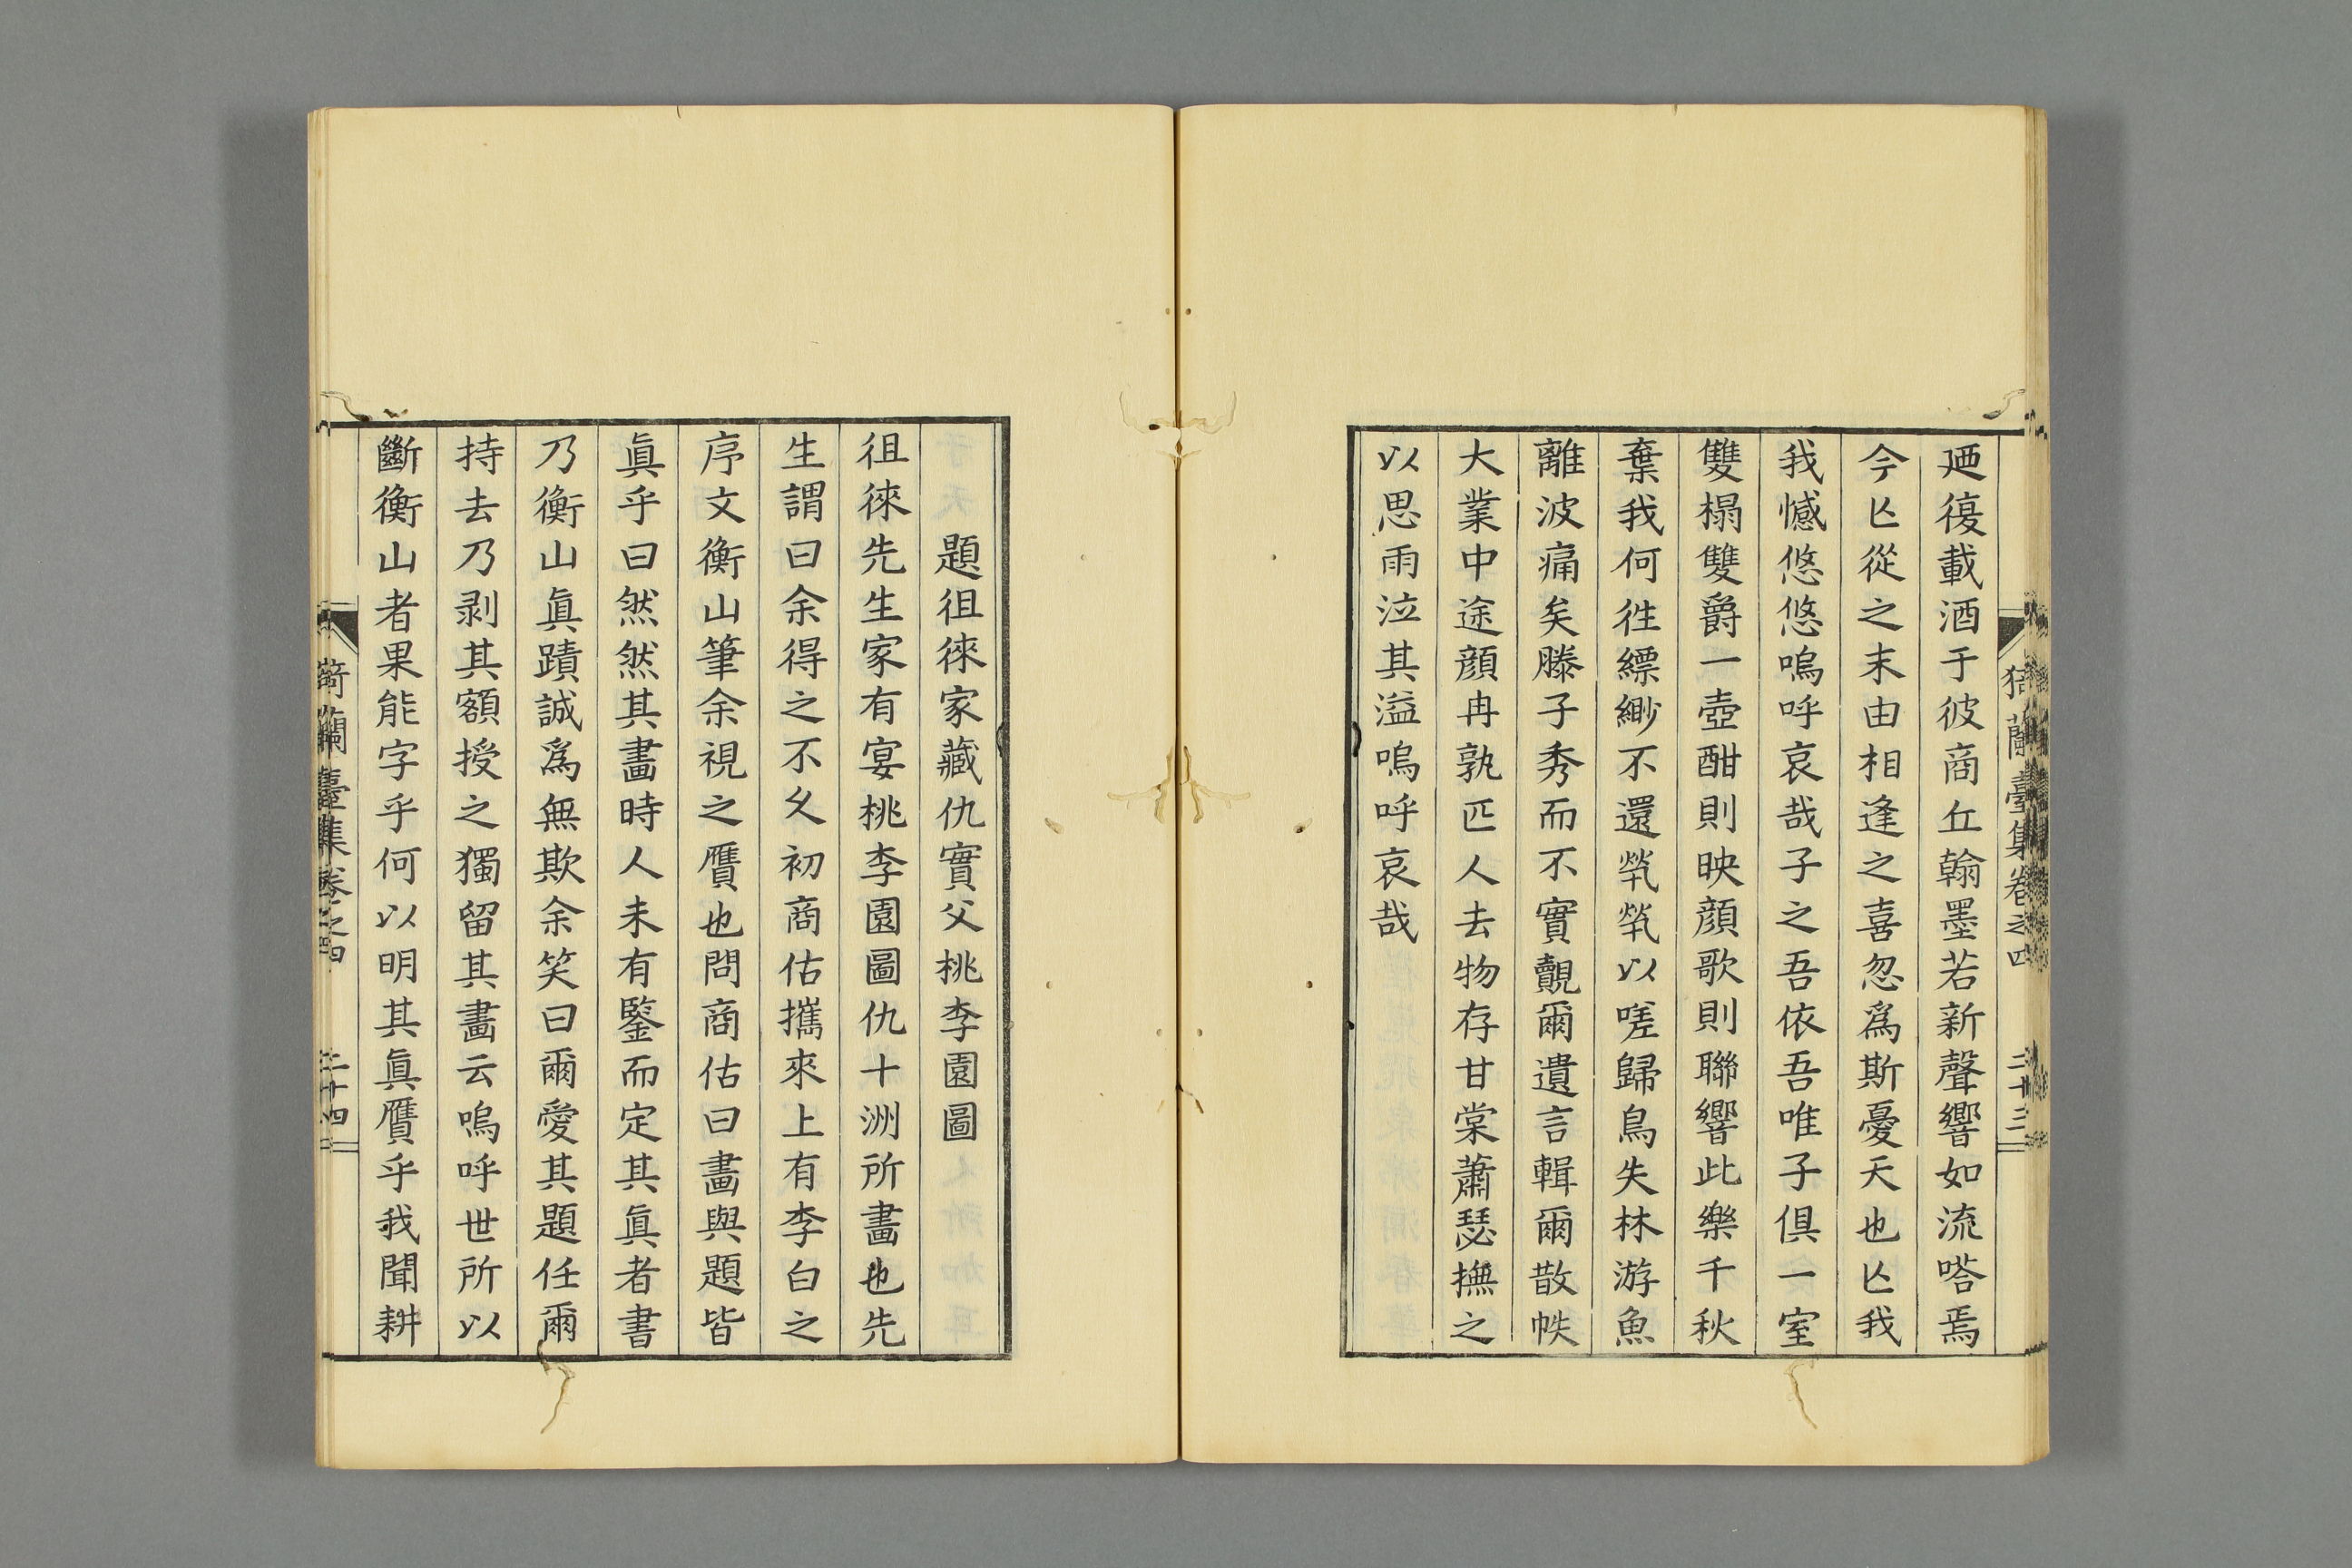 猗蘭臺集卷之四 二十三
廼復載酒于彼商丘翰墨若新聲響如流嗒焉
今亾從之末由相逢之喜忽爲斯憂天也亾我
我憾悠悠嗚呼哀哉子之吾依吾唯子俱一室
雙榻雙爵一壺酣則映顔歌則聯響此樂千秋
棄我何徃縹緲不還煢煢以嗟歸鳥失林游魚
離波痛矣滕子秀而不實覿爾遺言輯爾散帙
大業中途顔冉孰匹人去物存甘棠蕭瑟撫之
以思雨泣其溢嗚呼哀哉
題徂徠家藏仇實父桃李園圖
徂徠先生家有宴桃李園圖仇十洲所畫也先
生謂曰余得之不久初商估攜來上有李白之
序文衡山筆余視之贋也問商估曰畫與題皆
眞乎曰然然其畫時人未有鑒而定其眞者書
乃衡山眞蹟誠爲無欺余笑曰爾愛其題任爾
持去乃剥其額授之獨留其畫云嗚呼世所以
斷衡山者果能字乎何以明其眞贋乎我聞耕
猗蘭臺集卷之四 二十四